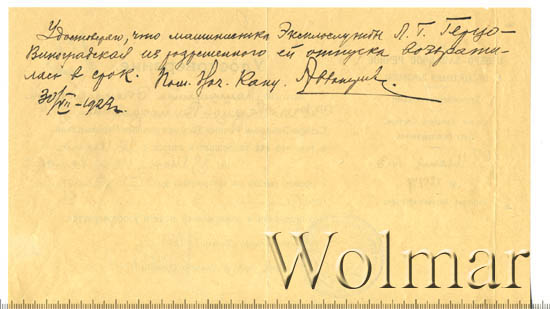 Удостоверяю, что машинистка Эксплослужбы Л. Т. Герцо-
Виноградская из разрешенного ей отпуска возврати-
лась в срок. Пом. Нач. Канц.
30/VII-1922г.
Wolmar